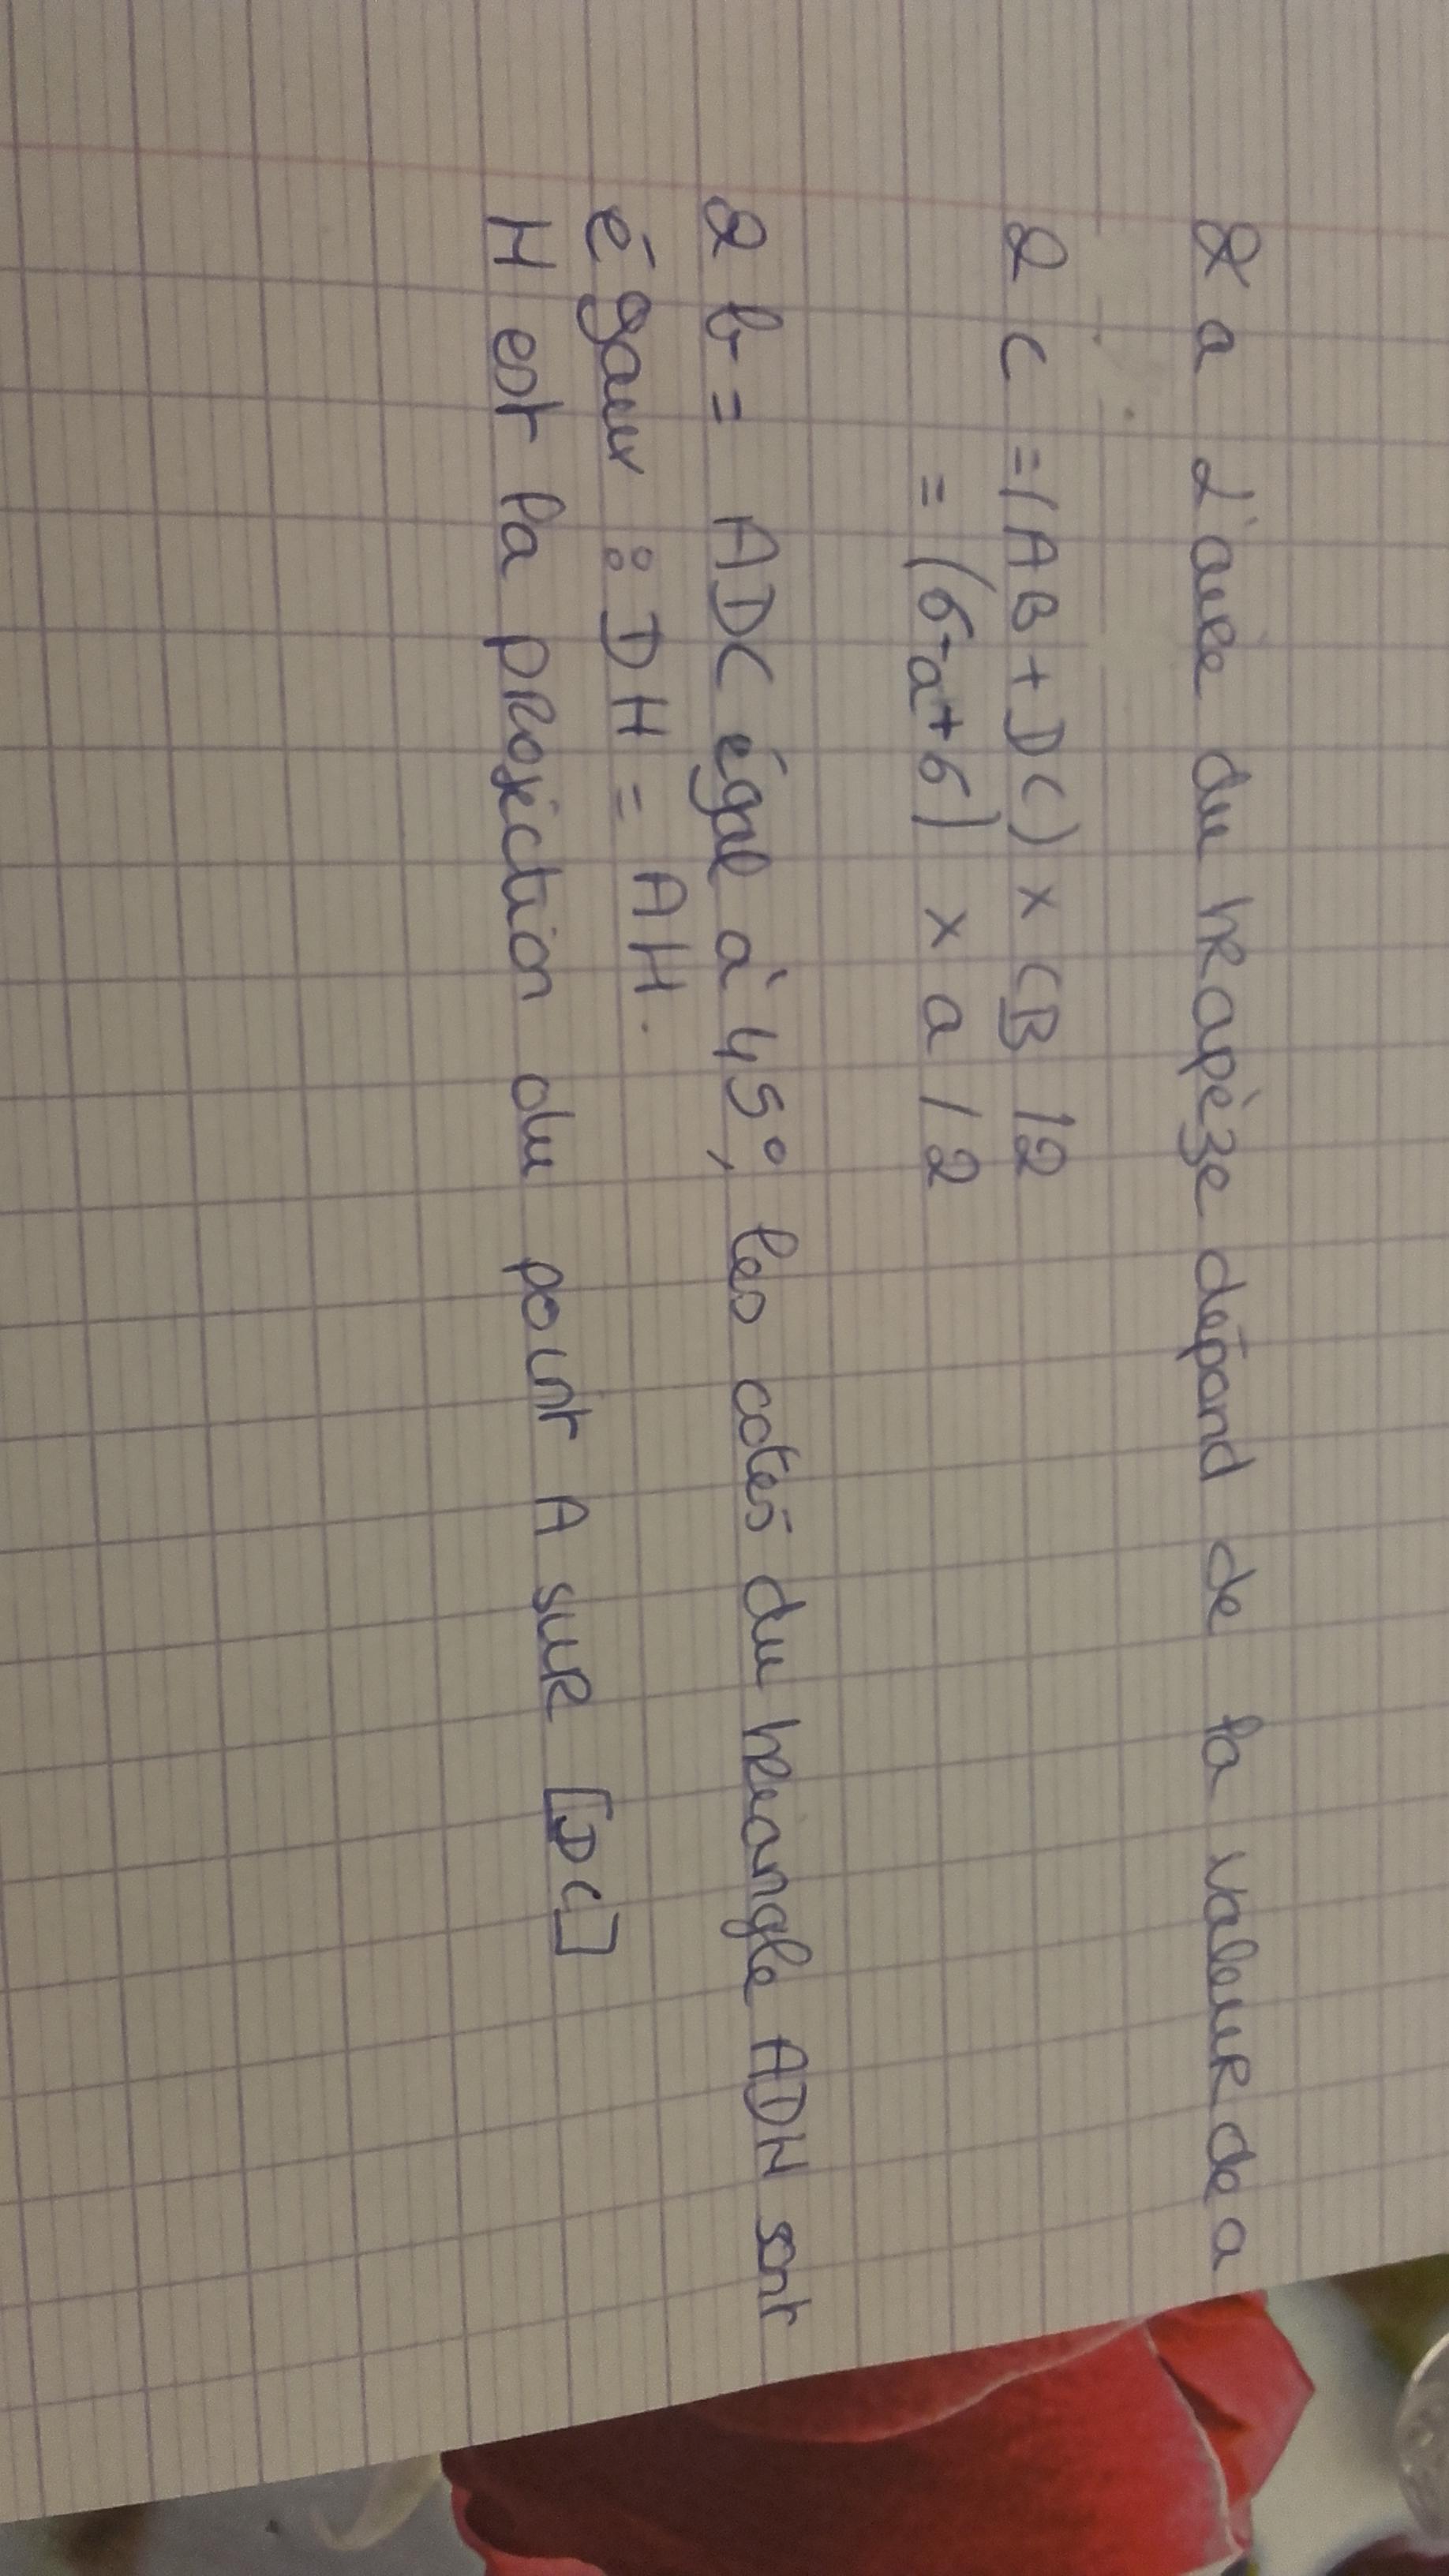 2 a L'aire du trapèze dépand de la valeur de a
2 C = (AB + DC) x CB /2
= (6-a+6) x a / 2
2 b = ADC égal à 45°, les cotés du triangle ADH sont
égaux : DH = AH.
H est la projection du point A sur [DC]